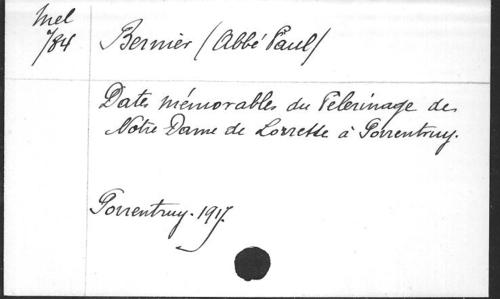 Mel
1/84
Bernier (Abbé Paul)
Dates mémorables du Pèlerinage de
Notre Dame de Lorette à Porrentruy.
Porrentruy. 1917.